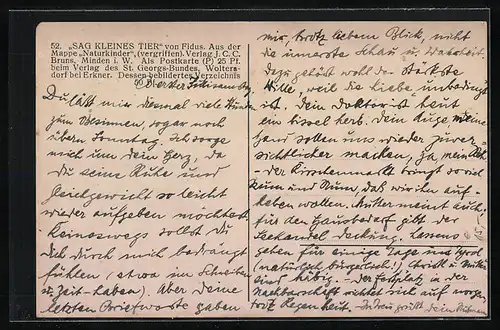 52. „SAG KLEINES TIER" von Fidus. Aus der
Mappe „Naturkinder", (vergriffen). Verlag J. C. C.
Bruns, Minden i. W. Als Postkarte (P) 25 Pf.
beim Verlag des St. Georgs-Bundes, Wolters-
dorf bei Erkner. Dessen bebildertes Verzeichnis
Du läßt mir diesmal viele Stunden
zum Besinnen, sogar noch
übern Sonntag. Ich sorge
mich um dein Herz, da
du seine Ruhe und
Gleichgewicht so leicht
wieder aufgeben möchtest.
Keineswegs sollst Du
dich durch mich bedrängt
fühlen (etwa im Schreiben
u. Zeit-haben). Aber deine
letzten Briefworte gaben
mir, trotz liebem Blick, nicht
die innerste Schau u. Wahrheit.
Dazu gehört wohl der stärkste
Wille, weil die Liebe unbedingt
ist. Dem Doktorist heut
ein bissel herb. Dein Auge meine
Hand sollen uns wieder zuver-
sichtlicher machen, ja, mein
- der bringt so viel
daß wir ihn auf-
heben wollen. Mutter meint auch
für den Hausbedarf gibt der
Seehandel Deckung. Lassens
gehen für einige Tage ins Tyrol
(natürlich bürgerlich!)
der Festplatz in der
Nachbarschaft richtet sich auf morgen,
trotz Regen heit. In Treu grüßt dein